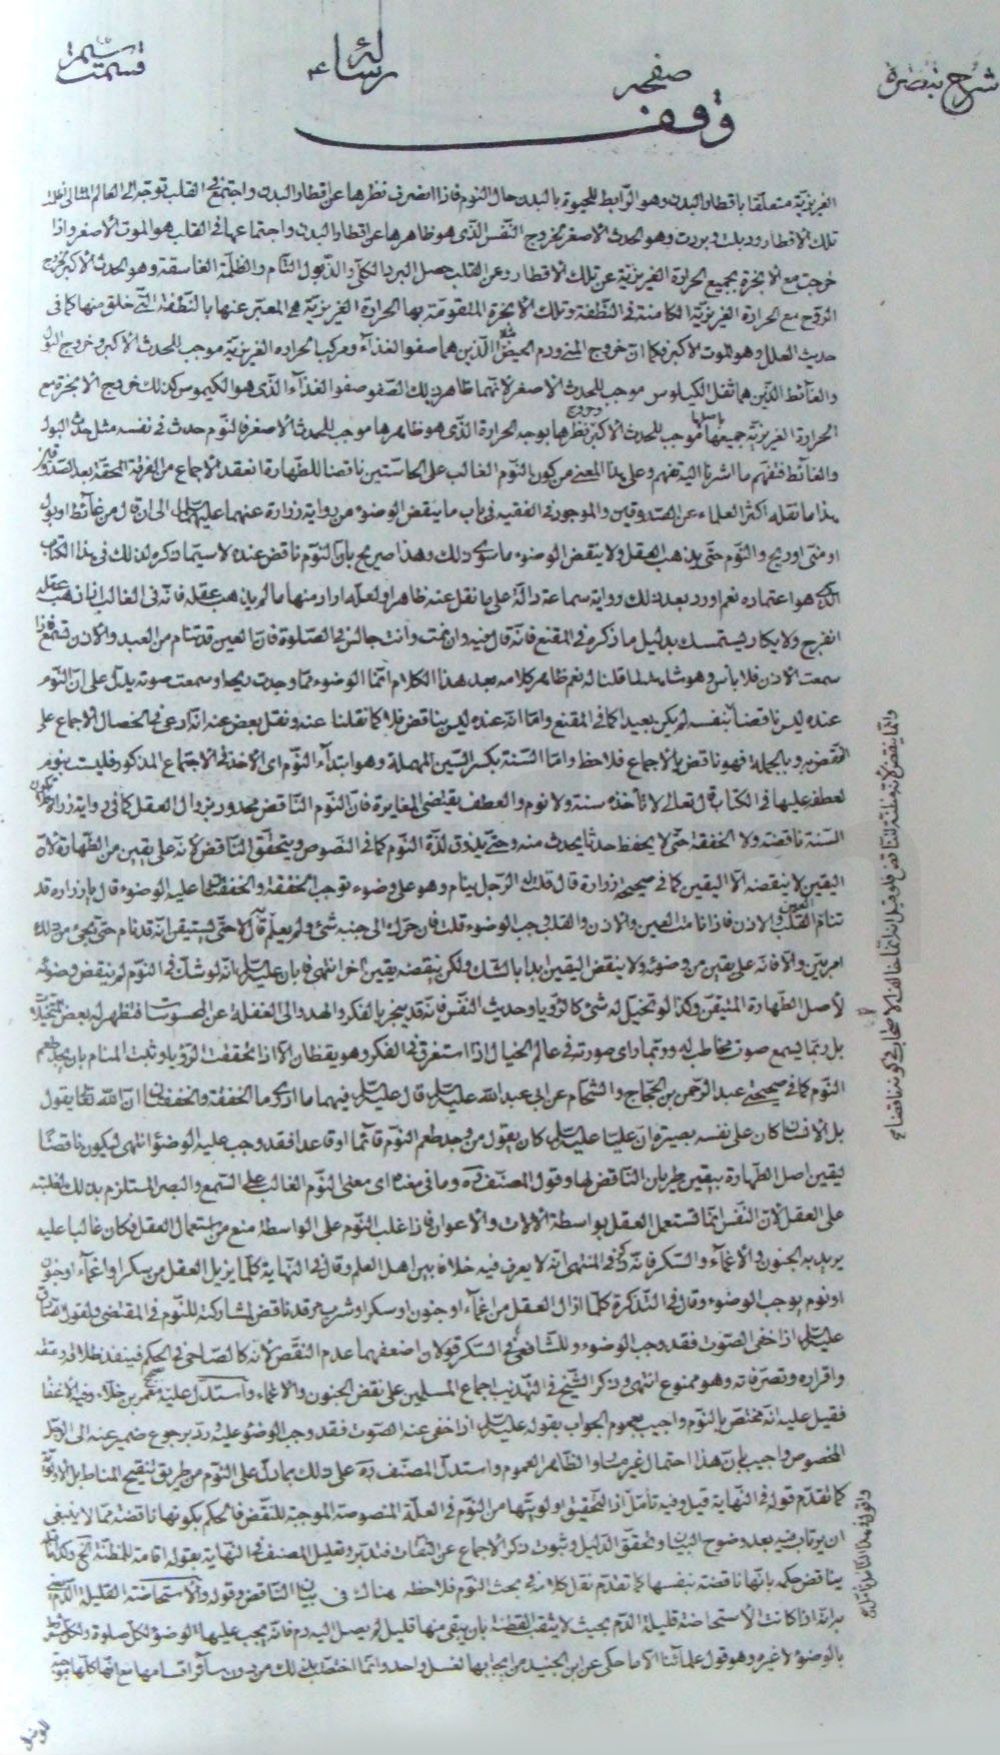 شرح تبصره
صفحه
رسالة
قسمت
وقف
الغريزيّة متعلّقا باقطار البدن وهو الرّابط للحيوة بالبدن حال النّوم فاذا انصرف نظرها عن اقطار البدن واجتمع في القلب توجّه الى العالم المثالى
تلك الاقطار وذبلت وبردت وهو الحدث الأصغر بخروج النّفس الّذى هو ظاهرها عن اقطار البدن واجتماعها فى القلب هو الموت الأصغر واذا
خرجت مع الابخرة بجميع الحرارة الغريزيّة عن تلك الأقطار وعن القلب حصل البرد الكلّى والذّبول التّام والظلمة الغاسقة وهو الحدث الأكبر بخروج
الرّوح مع الحرارة الغريزيّة الكامنة فى النّطفة وتلك الأبخرة المتقوّمة بها الحرارة الغريزيّة هى المعبّر عنها بالنّطفة الّتى خلق منها كما فى
حديث العلل وهو الموت الأكبر فكما انّ خروج المنى ودم الحيض الّذين هما صفو الغذاء ومركب الحرارة الغريزيّة موجب للحدث الأكبر وخروج البول
والغائط الّذين هما ثفل الكيلوس موجب للحدث الأصغر لانّهما ظاهر ذلك الصّفو صفو الغذاء الّذى هو الكيموس كذلك خروج الأبخرة مع
الحرارة الغريزيّة جميعها باسرها موجب للحدث الأكبر نظرها بوجه الحرارة الّذى هو ظاهرها موجب للحدث الأصغر فالنّوم حدث فى نفسه مثل حدث البول
والغائط فتفهّم ما اشرنا اليه تفهم وعلى هذا المعنى من كون النّوم الغالب على الحاسّتين ناقضا للطّهارة انعقد الأجماع من الفرقة المحقّة بعد الصّدوقين
هذا ما نقله اكثر العلماء عن الصّدوقين والموجود فى الفقيه فى باب ما ينقض الوضوء من رواية زرارة عنهما عليهما السلام الى ان قال من غائط او بول
او منى او ريح والنّوم حتّى يذهب العقل ولا ينقض الوضوء ما سوى ذلك وهذا صريح بانّ النّوم ناقض عنده لاسيّما ذكره لذلك فى هذا الكتاب
الّذى هو اعتماده نعم اورد بعد ذلك رواية سماعة دالّة على ما نقل عنه ظاهرا ولعلّه اراد منها ما لم يذهب عقله فانّه فى الغالب اذا ذهب عقله
انفرج ولا يكاد يستمسك بدليل ما ذكره فى المقنع فانّه قال فيه وان نمت وانت جالس فى الصّلوة فانّ العين قد تنام من العبد والاذن تسمع فاذا
سمعت الأذن فلا بأس وهو شاهد لما قلنا له نعم ظاهر كلامه بعد هذا الكلام انّما الوضوء ممّا وجدت ريحه او سمعت صوته يدلّ على انّ النّوم
عنده ليس ناقضا بنفسه لم يكن بعيدا كما فى المقنع وامّا انّه عنده ليس بناقض فلا كما نقلنا عنه ونقل بعض عنه انّه ادعى فى الخصال الأجماع على
النّقض به وبالجملة فهو ناقض بالأجماع فلاحظ وامّا السّنة بكسر السّين المهملة وهو ابتداء النّوم اى الأخذ فى الأجتماع المذكور فليست بنوم
لعطفه عليها فى الكتاب قال تعالى لا تأخذه سنة ولا نوم والعطف يقتضى المغايرة فانّ النّوم النّاقض محدود بزوال العقل كما فى رواية زرارة
السّنة ناقضة ولا الخفقة حتّى لا يحفظ حدثا يحدث منه وحتّى يذوق لذّة النّوم كما فى النّصوص ويتحقّق النّاقض لانّه على يقين من الطّهارة لانّ
اليقين لا ينقضه الّا اليقين كما فى صحيحة زرارة قال قلت له الرّجل ينام وهو على وضوء توجب الخفقة والخفقتان عليه الوضوء قال يا زرارة قد
تنام العين ولا ينام القلب والاذن فاذا نامت العين والاذن والقلب وجب الوضوء قلت فان حرّك الى جنبه شئ ولم يعلم قال لا حتّى يستيقن انّه قد نام حتّى يجئ من ذلك
امر بيّن والّا فانّه على يقين من وضوئه ولا ينقض اليقين ابدا بالشّك ولكن ينقضه بيقين آخر انتهى فابان عليه السلام انّه لو شكّ فى النّوم لم ينقض وضوئه
لأصل الطّهارة المتيقّن وكذا لو تخيّل له شئ كالرّؤيا وحديث النّفس فانّه قد ينجرّ بالفكر والهدو الى الغفلة عن المحسوسات فتظهر له بعض المتخيّلات
بل ربّما يسمع صوت مخاطب له وربّما راى صورته فى عالم الخيال اذا استغرق فى الفكر وهو يقظان الّا اذا تحققت الرّؤيا وثبت المنام بان يجد طعم
النّوم كما فى صحيحتى عبد الرّحمن بن الحجّاج والشّحّام عن ابى عبد الله عليه السلام قال عليه السلام فيهما ما ادرى ما الخفقة والخفقتان انّ الله تعالى يقول
بل الأنسان على نفسه بصيرة انّ عليّا عليه السلام كان يقول من وجد طعم النّوم قائما او قاعدا فقد وجب عليه الوضوء انتهى ليكون ناقضا
ليقين اصل الطّهارة بيقين طريان النّاقض لها وقول المصنّف ره وما فى معناه اى معنى النّوم الغالب على السّمع والبصر المستلزم بذلك لغلبته
على العقل لانّ النّفس انّما تستعمل العقل بواسطة الألات والأعوان فاذا غلب النّوم على الواسطة منع من استعمال العقل فكان غالبا عليه
يريد به الجنون والأغماء والسّكر فانّه ذكر فى المنتهى انّه لا يعرف فيه خلافا بين اهل العلم وقال فى النّهاية كلّما يزيل العقل من سكر او اغماء او جنون
او نوم يوجب الوضوء وقال فى التّذكرة كلّما ازال العقل من اغماء او جنون او سكر او شرب مرقد ناقض لمشاركته للنّوم فى المقتضى ولقول الصّادق
عليه السلام اذا خفى الصّوت فقد وجب الوضوء وللشّافعى فى السّكر قولان اضعفهما عدم النّقض لانّه كالصّاحى فى الحكم فينفذ طلاقه وعتقه
واقراره وتصرّفاته وهو ممنوع انتهى وذكر الشّيخ فى التّهذيب اجماع المسلمين على نقض الجنون والأغماء واستدلّ عليه بصحيح معمر بن خلّاد وفيه الأغفاء
فقيل عليه انّه مختصّ بالنّوم واجيب بعموم الجواب بقوله عليه السلام اذا خفى عنه الصّوت فقد وجب الوضوء عليه وردّ برجوع ضمير عنه الى الرّجل
المخصوص واجيب بانّ هذا احتمال غير مساو والظّاهر العموم واستدلّ المصنّف ره على ذلك بما دلّ على النّوم من طريق تنقيح المناط بل الأولويّة
كما تقدّم قوله فى النّهاية قيل وفيه تأمّل اذ التّحقيق اولويّتها من النّوم فى العلّة المنصوصة الموجبة للنّقض فالحكم بكونها ناقضة ممّا لا ينبغى
ان يرتاب فيه بعد وضوح البيان وتحقّق الدّليل وثبوت ذكر الأجماع عن الثّقات فتدبّر وتعليل المصنّف فى النّهاية بقوله اقامة للمظنّة الخ
يناقض حكمه بانّها ناقضة بنفسها كما تقدّم نقل كلامه فى بحث النّوم فلاحظه هناك فى بيان النّاقض وقوله والأستحاضة القليلة الدّم يعنى
به انّه اذا كانت الأستحاضة قليلة الدّم بحيث لا يثقب القطنة بان يبقى منها قليل لم يصل اليه دم فانّه يجب عليها الوضوء لكلّ صلوة
بالوضوء لا غيره وهو قول علمائنا الّا ما حكى عن ابن الجنيد من ايجابها لغسل واحد وانّما اختصّ بذلك من دون سائر اقسامها مع انّها كلّها موجبة
للوضوء